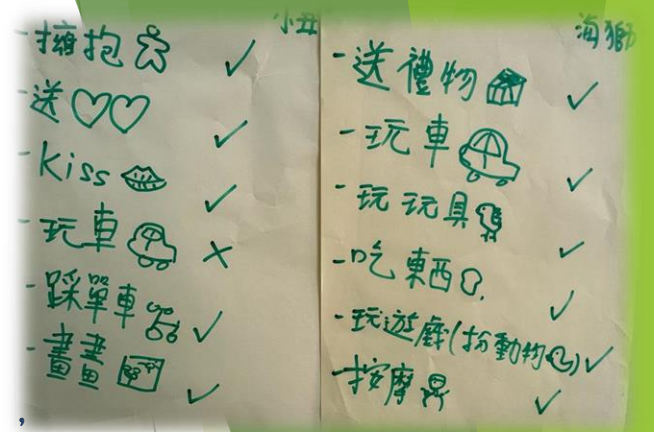 小丑
-擁抱 ✓
-送♡♡ ✓
-Kiss ✓
-玩車 ×
-踩單車 ✓
-畫畫 ✓
海獅
-送禮物 ✓
-玩車 ✓
-玩玩具 ✓
-吃東西 ✓
-玩遊戲(扮動物) ✓
-按摩 ✓
,